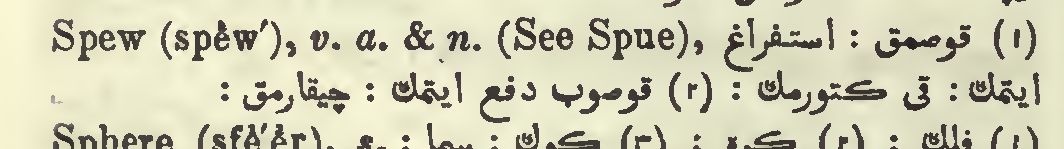 Spew (spèw′), v. a. & n. (See Spue), (١) قوصمق : استفراغ
ايتمك : قی كتورمك : (٢) قوصوب دفع ايتمك : چيقارمق :
Sphere (sfè′ėr),